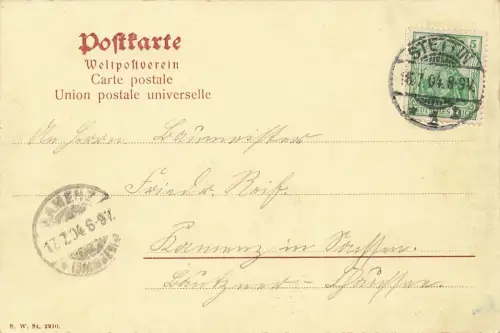 Postkarte
Weltpostverein
Carte postale
Union postale universelle
5
STETTIN
17.7.04. 8-9V.
* 1 
An Herrn Baumeister
Friedr. Reif.
Kamenz in Sachsen
KAMENZ
17.7.04 6-9V.
* (SACHSEN) *
S. W. St. 2910.